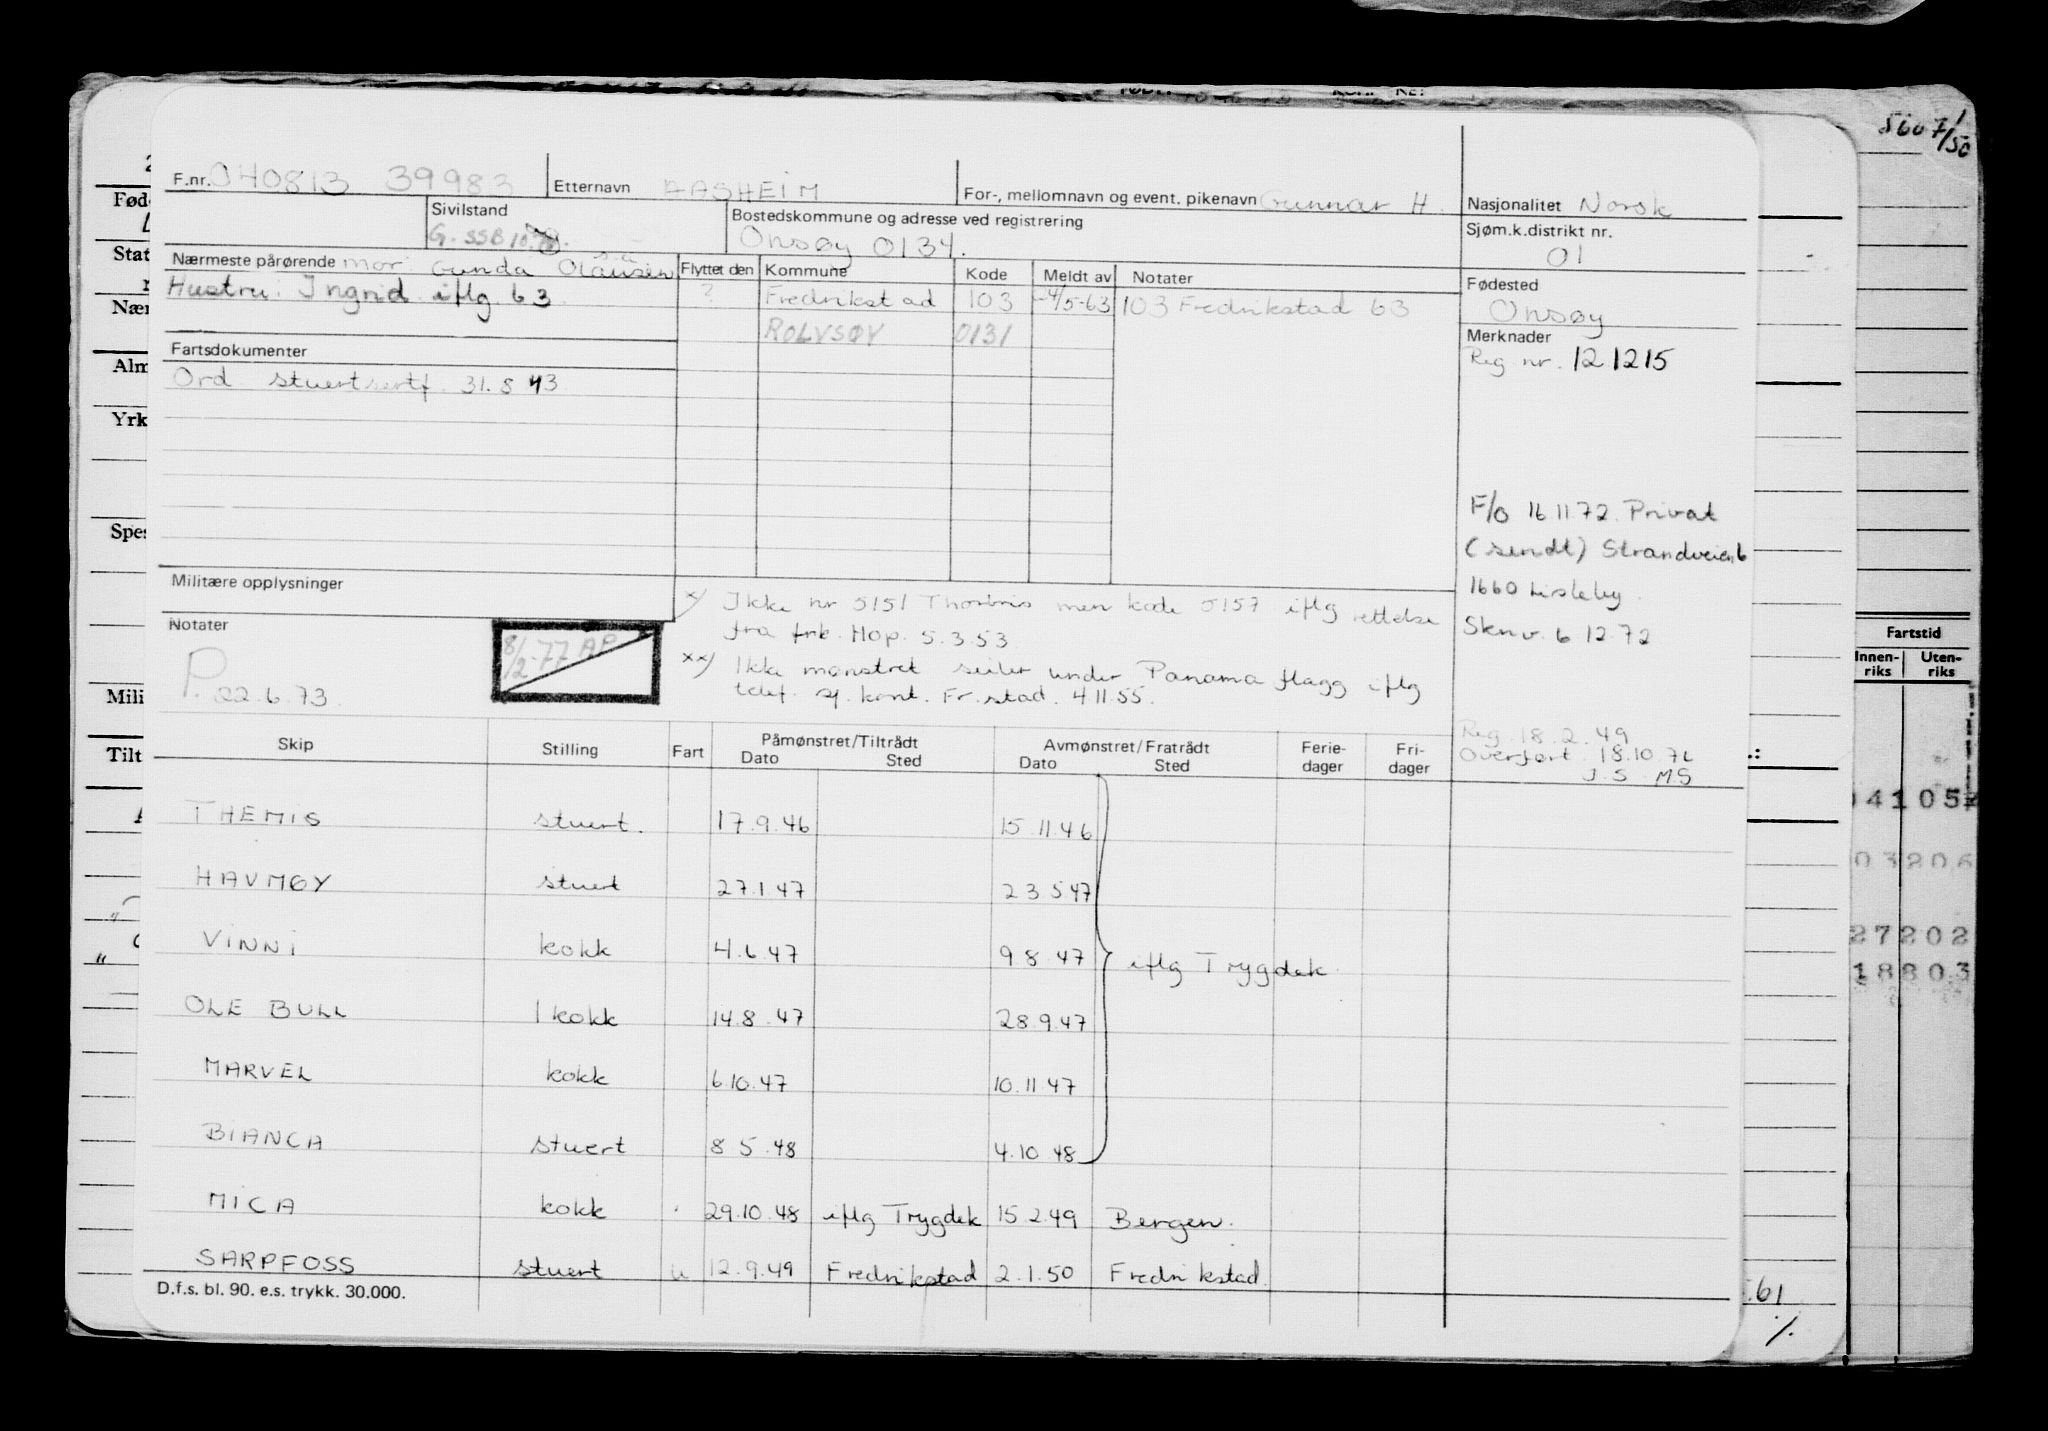 5607/50
F.nr. 040813 39983 Etternavn AASHEIM For-, mellomnavn og event. pikenavn Gunnar H. Nasjonalitet Norsk
Sivilstand G. SSB Bostedskommune og adresse ved registrering Onsøy 0134. Sjøm.k.distrikt nr. 01
Nærmeste pårørende mor: Gunda Olausen Flyttet den Kommune Kode Meldt av Notater Fødested
Hustru: Ingrid iflg. 63 ? Fredrikstad 103 -4/5-63 103 Fredrikstad 63 Onsøy
ROLVSØY 0131 Merknader
Fartsdokumenter Reg nr. 121215
Ord stuertsertf. 31.8 43
F/o 16 11.72. Privat
(sendt) Strandveien 6
1660 Lisleby.
Militære opplysninger
x) Ikke nr 5151 Thorbris men kode 5157 iflg rettelse
fra frk. Hop. 5.3.53
Notater 8/2-77 AP Sknv. 6 12.72
xx) Ikke mønstret seiler under Panama flagg iflg
telef. sj. kont. Fr.stad. 4 11.55.
P. 22.6.73
Reg. 18.2.49
Overført. 18.10.72
J.S M.S
Skip Stilling Fart Påmønstret/Tiltrådt Dato Sted Avmønstret/Fratrådt Dato Sted Ferie-dager Fri-dager
THEMIS stuert. 17.9.46 15.11.46
HAVMØY stuert 27.1.47 23.5.47
VINNI kokk 4.6.47 9.8.47 iflg Trygdek.
OLE BULL 1 kokk 14.8.47 28.9.47
MARVEL kokk 6.10.47 10.11.47
BIANCA stuert 8.5.48 4.10.48
MICA kokk 29.10.48 iflg Trygdek 15.2.49 Bergen.
SARPFOSS stuert u 12.9.49 Fredrikstad 2.1.50 Fredrikstad.
D.f.s. bl. 90. e.s. trykk. 30.000.
Fød
Stat
Nær
Alm
Yrk
Spes
Mili
Tilt
Fartstid
Innen-riks Uten-riks
41052
03206
27202
18803
.61
%